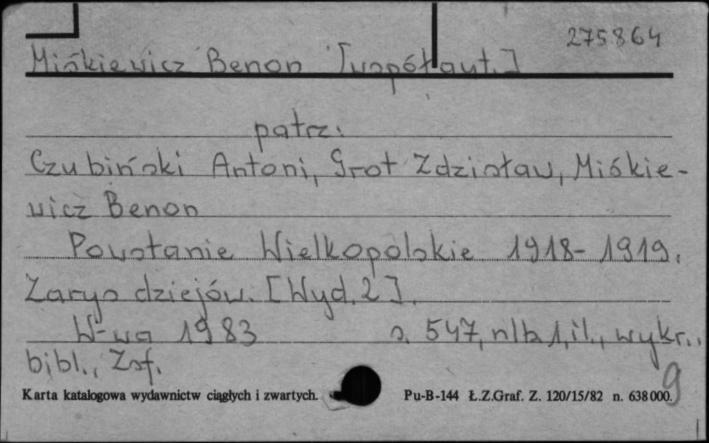 275864
Miśkiewicz Benon [współaut.]
patrz:
Czubiński Antoni, Grot Zdzisław, Miśkie-
wicz Benon
Powstanie Wielkopolskie 1918-1919.
Zarys dziejów. [Wyd. 2].
W-wa 1983 s. 547, nlb 1, il., wykr.,
bibl., Zsf.
9
Karta katalogowa wydawnictw ciągłych i zwartych. Pu-B-144 Ł.Z.Graf. Z. 120/15/82 n. 638 000.